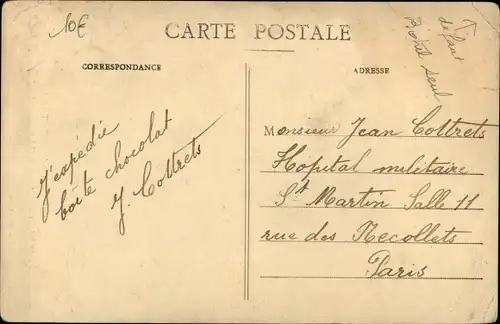 10€
CARTE POSTALE
CORRESPONDANCE
ADRESSE
J'expédie
boîte chocolat
J. Cottrets
Monsieur Jean Cottrets
Hopital militaire
St Martin Salle 11
rue des Recollets
Paris